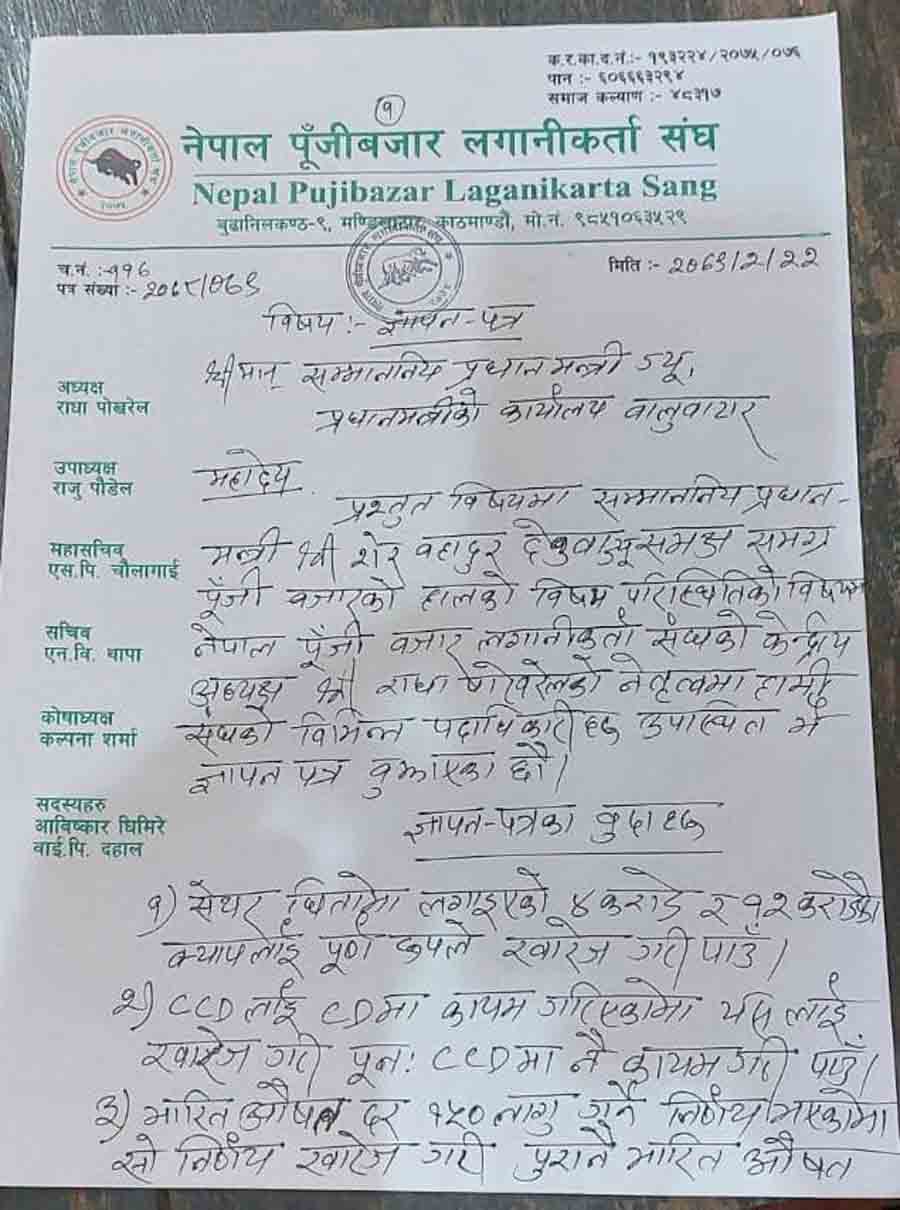 क.र.का.द.नं.:- १९३२२४/२०७५/०७६
पान :- ६०६६६३२९४
समाज कल्याण :- ४८३१७
१
नेपाल पूँजीबजार लगानीकर्ता संघ
Nepal Pujibazar Laganikarta Sang
बुढानिलकण्ठ-९, काठमाण्डौ, मो.नं. ९८५१०६३५२९
च.नं. :-११६
मिति :- २०७९/२/२२
पत्र संख्या :- २०७८/०७९
विषय :- ज्ञापन-पत्र
श्रीमान् सम्माननिय प्रधानमन्त्री ज्यू,
प्रधानमन्त्रीको कार्यालय वालुवाटार
अध्यक्ष
राधा पोखरेल
उपाध्यक्ष
राजु पौडेल
महासचिव
एस.पि. चौलागाई
सचिव
एन.वि. थापा
कोषाध्यक्ष
कल्पना शर्मा
सदस्यहरु
आविष्कार घिमिरे
वाई.पि. दहाल
महोदय
प्रस्तुत विषयमा सम्माननिय प्रधान-
मन्त्री श्री शेर वहादुर देउवाज्यूसमक्ष समग्र
पूँजी वजारको हालको विषम परिस्थितिको विषयमा
नेपाल पूँजी वजार लगानीकर्ता संघको केन्द्रीय
अध्यक्ष श्री राधा पोखरेलको नेतृत्वमा हामी
संघको विभिन्न पदाधिकारीहरु उपास्थित भै
ज्ञापन पत्र वुझाएका छौ।
ज्ञापन-पत्रका वुदाहरु
१) सेयर धितोमा लगाइएको ४ करोड र १२ करोडको
क्यापलाई पूर्ण रुपले खारेज गरी पाउँ।
२) CCD लाई CD मा कायम गरिएकोमा यस लाई
खारेज गरी पून: CCD मा नै कायम गरी पाउँ।
३) भारित औषत दर १५० लागु गर्ने निर्णय भएकोमा
सो निर्णय खारेज गरी पुरानै भारित औषत